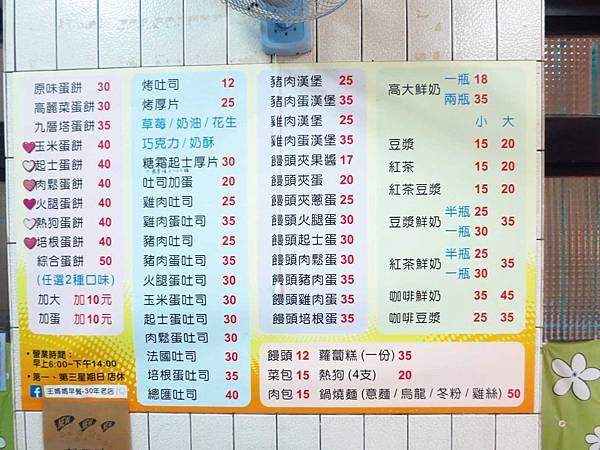 原味蛋餅 30
高麗菜蛋餅 30
九層塔蛋餅 35
玉米蛋餅 40
起士蛋餅 40
肉鬆蛋餅 40
火腿蛋餅 40
熱狗蛋餅 40
培根蛋餅 40
綜合蛋餅 50
(任選2種口味)
加大 加10元
加蛋 加10元
•營業時間：
早上6:00~下午14:00
•第一、第三星期日店休
王媽媽早餐-30年老店
烤吐司 12
烤厚片 25
草莓/奶油/花生
巧克力/奶酥
糖霜起士厚片 30
吐司加蛋 20
雞肉吐司 25
雞肉蛋吐司 35
豬肉吐司 25
豬肉蛋吐司 35
火腿蛋吐司 30
玉米蛋吐司 30
起士蛋吐司 30
肉鬆蛋吐司 30
法國吐司 30
培根蛋吐司 35
總匯吐司 40
豬肉漢堡 25
豬肉蛋漢堡 35
雞肉漢堡 25
雞肉蛋漢堡 35
饅頭夾果醬 17
饅頭夾蛋 20
饅頭夾蔥蛋 25
饅頭火腿蛋 30
饅頭起士蛋 30
饅頭肉鬆蛋 30
饅頭豬肉蛋 35
饅頭雞肉蛋 35
饅頭培根蛋 35
高大鮮奶 一瓶 18
兩瓶 35
小 大
豆漿 15 20
紅茶 15 20
紅茶豆漿 15 20
豆漿鮮奶 半瓶 25 35
一瓶 30
紅茶鮮奶 半瓶 25 35
一瓶 30
咖啡鮮奶 35 45
咖啡豆漿 25 35
饅頭 12 蘿蔔糕(一份) 35
菜包 15 熱狗(4支) 20
肉包 15 鍋燒麵(意麵/烏龍/冬粉/雞絲) 50